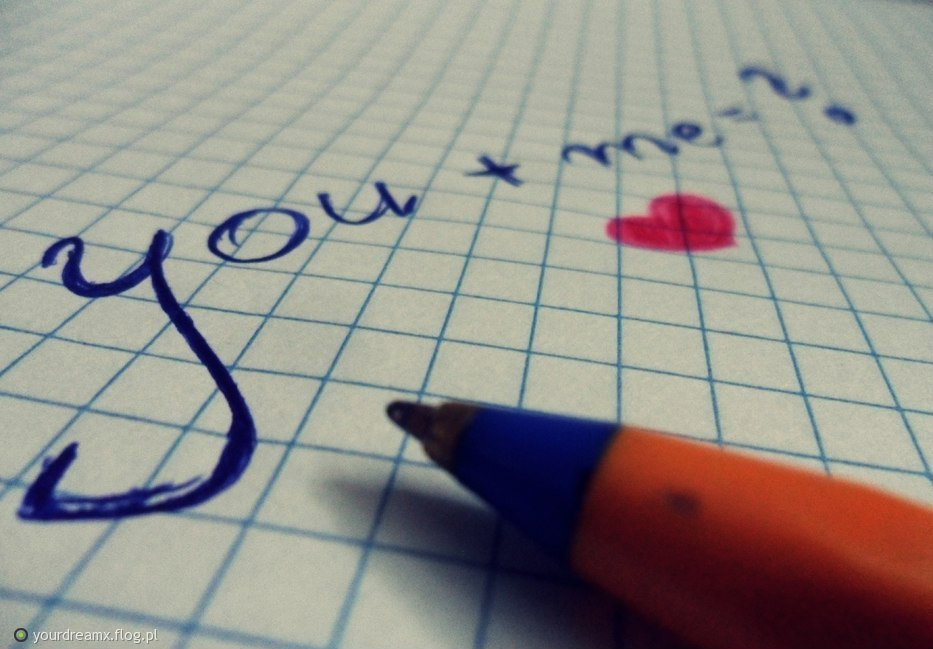 you + me = ?
yourdreamx.flog.pl